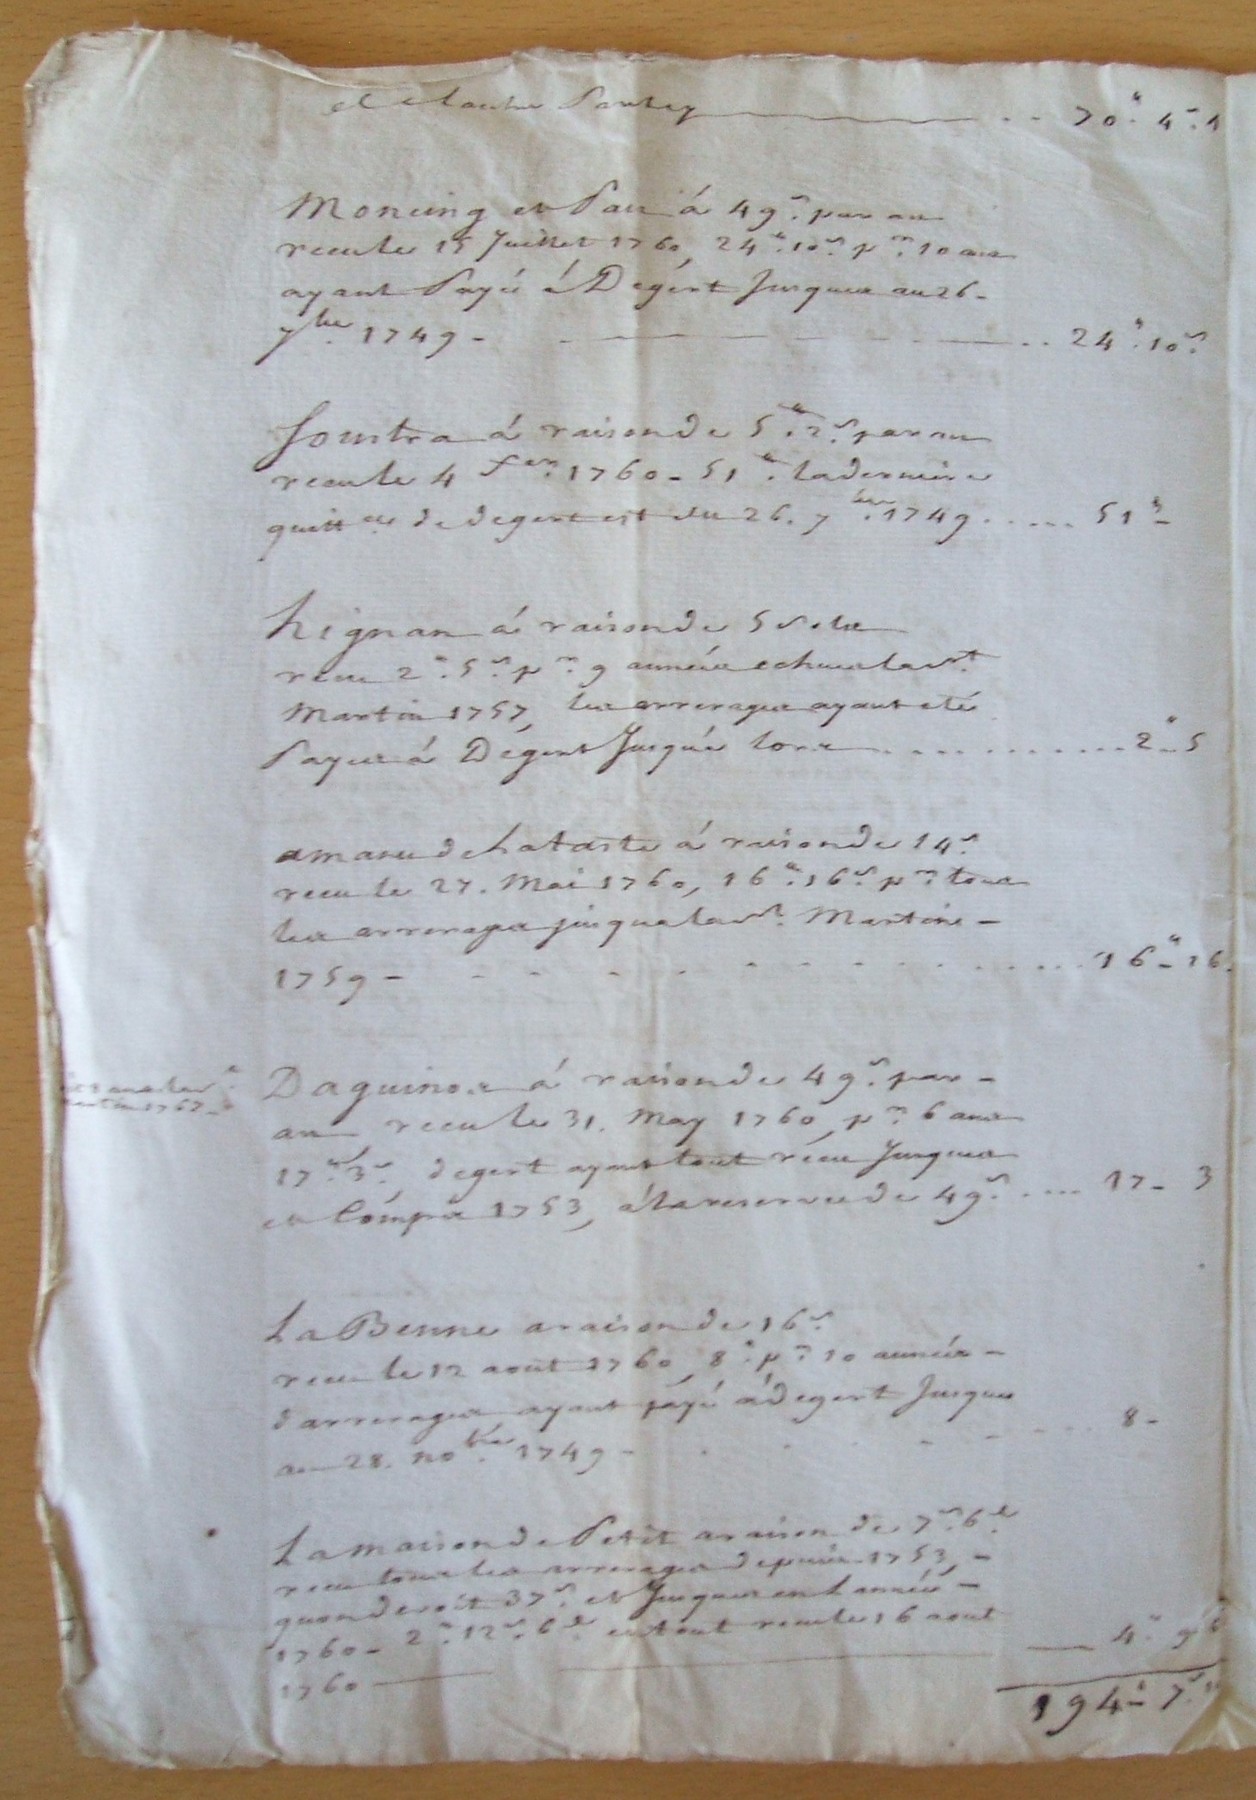 et 70# 4s. 1
Moncing et Pau á 49s. par an
receu le 15 Juillet 1760, 24#. 10s. pr. 10 ans
ayant Payé á Dégert Jusques au 26 -
7bre 1749 - 24#. 10s.
Joustra á raison de 5#. 2s. par an
receu le 4 fer. 1760 - 51#. la derniere
quittce. de degert est du 26. 7bre. 1749 . . . . . 51#-
Lignan á raison de 5 sols
receu 2#. 5s. pr. 9 années echues la St.
Martin 1757, les arrerages ayant eté
Payes á Dégert Jusqués lors . . . . . . . . . . . 2#- 5
de Lataste á raison de 14s.
receu le 27. Mai 1760, 16#. 16s. pr. tous
les arrerages jusqua la St. Martin -
1759 - 16#- 16.
Martin 1767 -
Daguinos á raison de 49s. par -
an receu le 31. May 1760 pr. 6 ans
17#. 3s. degert ayant tout réceu Jusques
et Cómpris 1753, á la reserve de 49s. . . . . 17 - 3
La Benne a raison de 16s.
receu le 12 aout 1760, 8#. pr. 10 années -
d'arrerages ayant páyé á Degert Jusques
au 28. nobre. 1749 - 8 -
La maison de Petit a raison de 7s. 6d.
receu tous les arrerages depuis 1753, -
quon devoit 37s. et Jusques en L'année -
1760 - 2#. 12s. 6d. en tout receu le 16 aout
1760 4#. 9s.
194#- 7s.